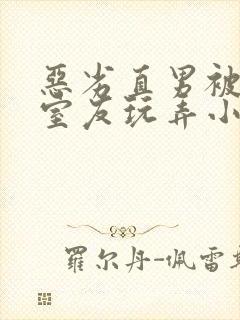 惡劣直男被
室友玩弄小
羅尔丹-佩雷